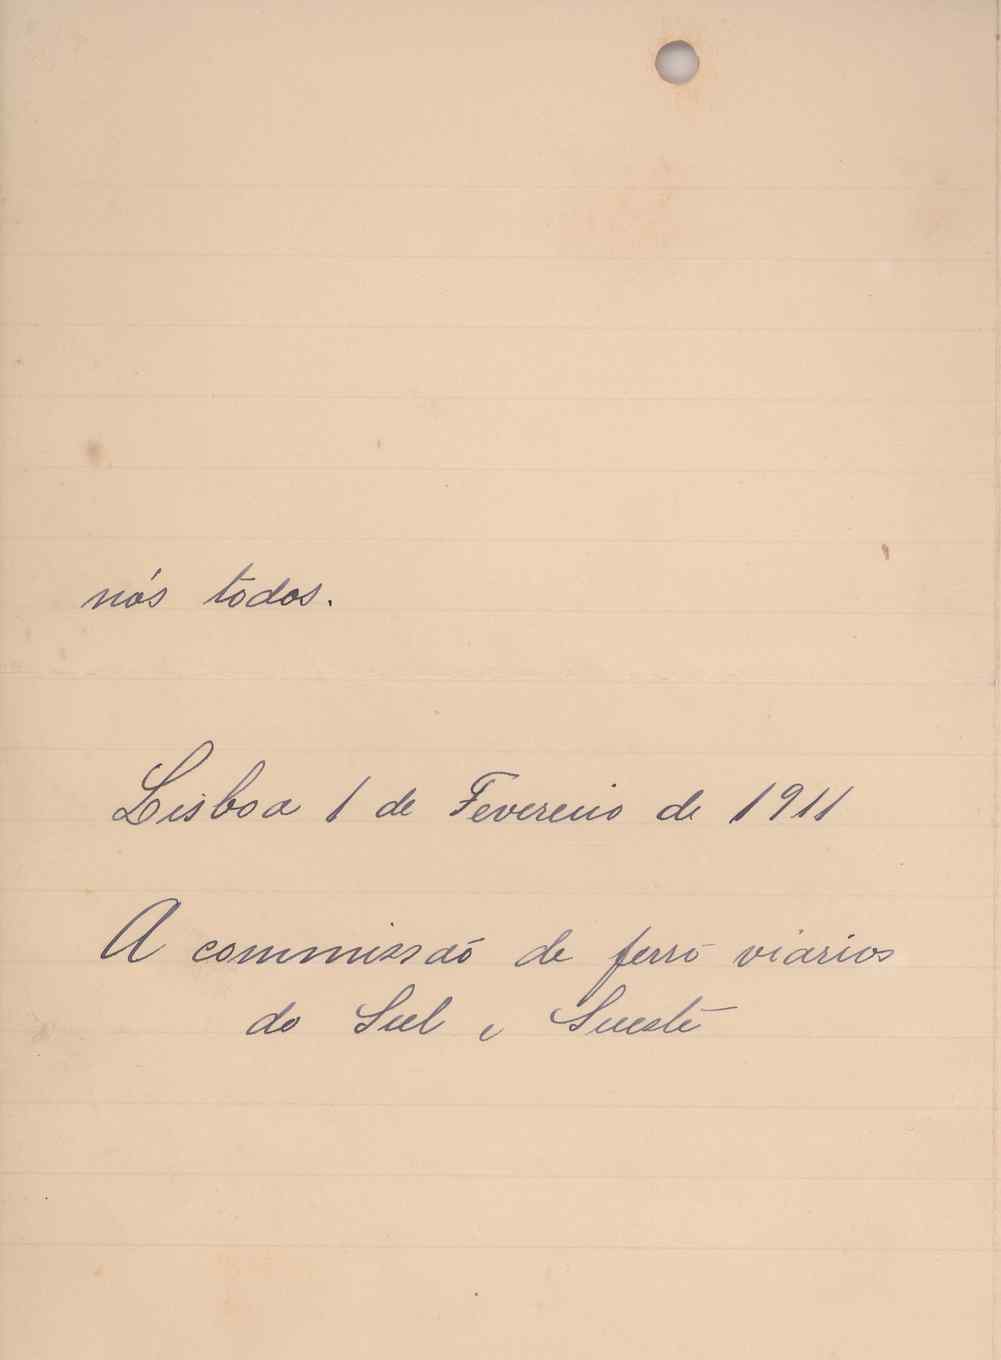 nós todos.
Lisboa 1 de Fevereiro de 1911
A commissaó de ferro viarios
do Sul e Sueste